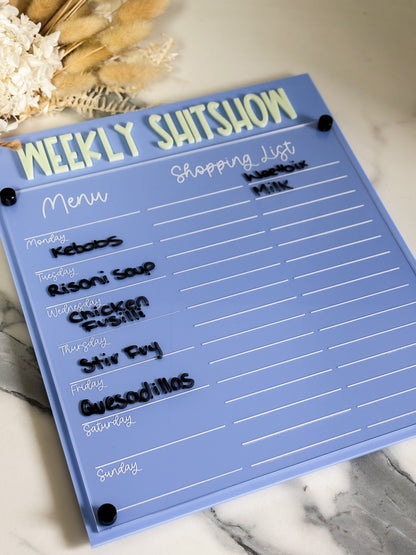 WEEKLY SHITSHOW
Menu
Shopping List
Weetbix
Milk
Monday
Kebabs
Tuesday
Risoni Soup
Wednesday
Chicken
Fusilli
Thursday
Stir Fry
Friday
Quesadillas
Saturday
Sunday